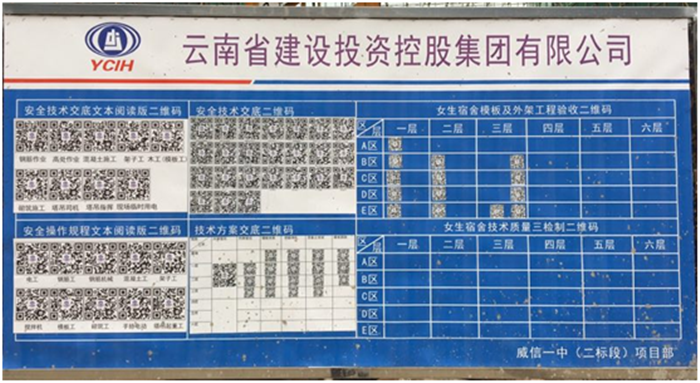 YCIH
云南省建设投资控股集团有限公司
安全技术交底文本阅读版二维码
钢筋作业 高处作业 混凝土施工 架子工 木工(模板工)
砌筑施工 塔吊司机 塔吊指挥 现场临时用电
安全技术交底二维码
女生宿舍模板及外架工程验收二维码
区 层 一层 二层 三层 四层 五层 六层
A区
B区
C区
D区
E区
安全操作规程文本阅读版二维码
电工 钢筋工 钢筋机械 混凝土工 架子工
搅拌机 模板工 砌筑工 手持电动
技术方案交底二维码
女生宿舍技术质量三检制二维码
区 层 一层 二层 三层 四层 五层 六层
A区
B区
C区
D区
E区
威信一中（二标段）项目部